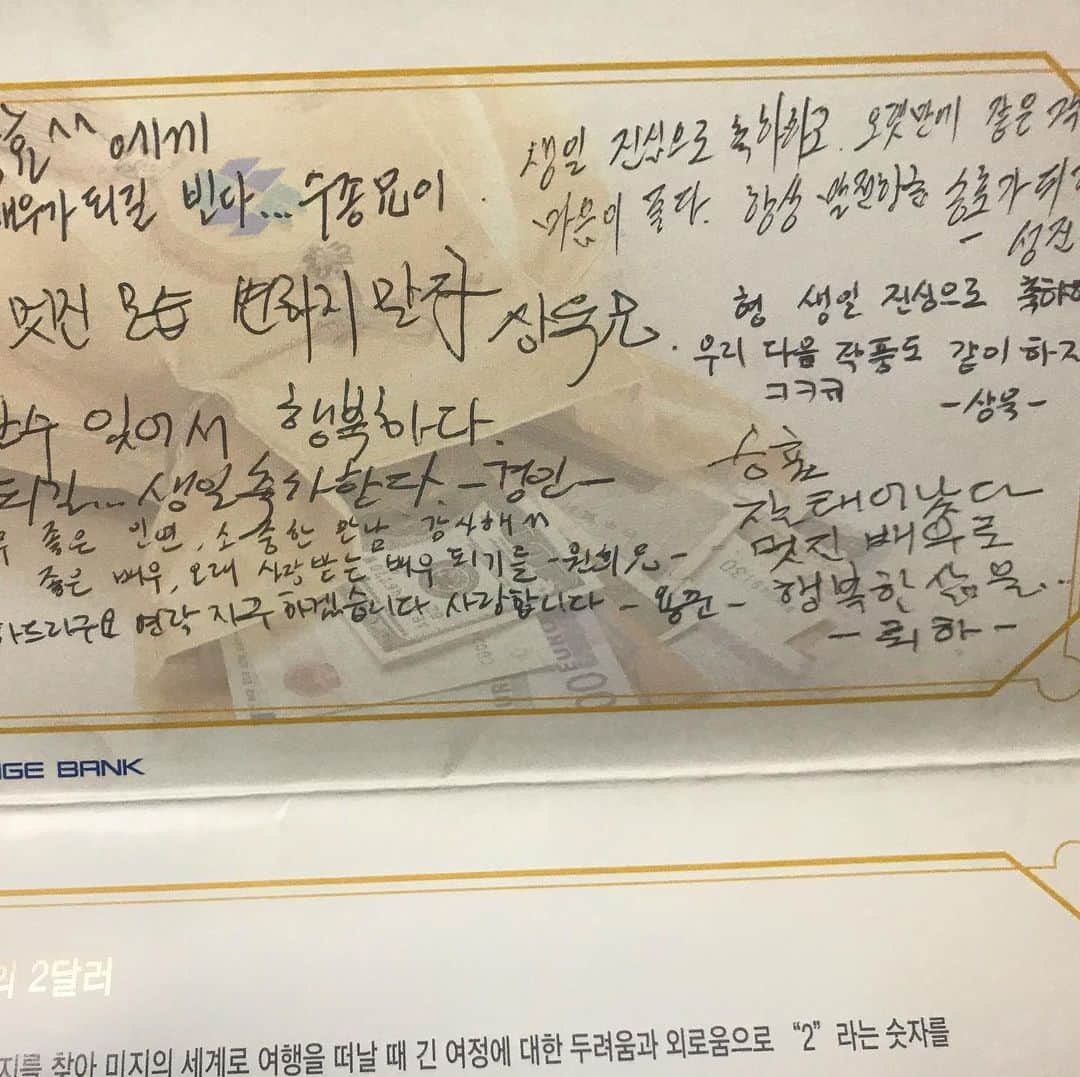 에게
배우가 되길 빈다... 수종兄이.
멋진 모습 변하지 말자 상욱兄.
있어서 행복하다.
되길... 생일 축하한다. -경인-
좋은 인연, 소중한 만남 감사해^^
좋은 배우, 오래 사랑받는 배우 되기를 -원희兄-
하드리구요 연락 자주 하겠습니다 사랑합니다 -용준-
생일 진심으로 축하하고. 오랫만에 같은 작
마음이 좋다. 항상 발전하는 승효가 되
- 성진
형 생일 진심으로 축하
우리 다음 작품도 같이 하자
ㅋㅋㅋ
-상욱-
승효
잘 태어났다
멋진 배우로
행복한 삶을...
-뢰하-
NGE BANK
의 2달러
지를 찾아 미지의 세계로 여행을 떠날 때 긴 여정에 대한 두려움과 외로움으로 “2” 라는 숫자를